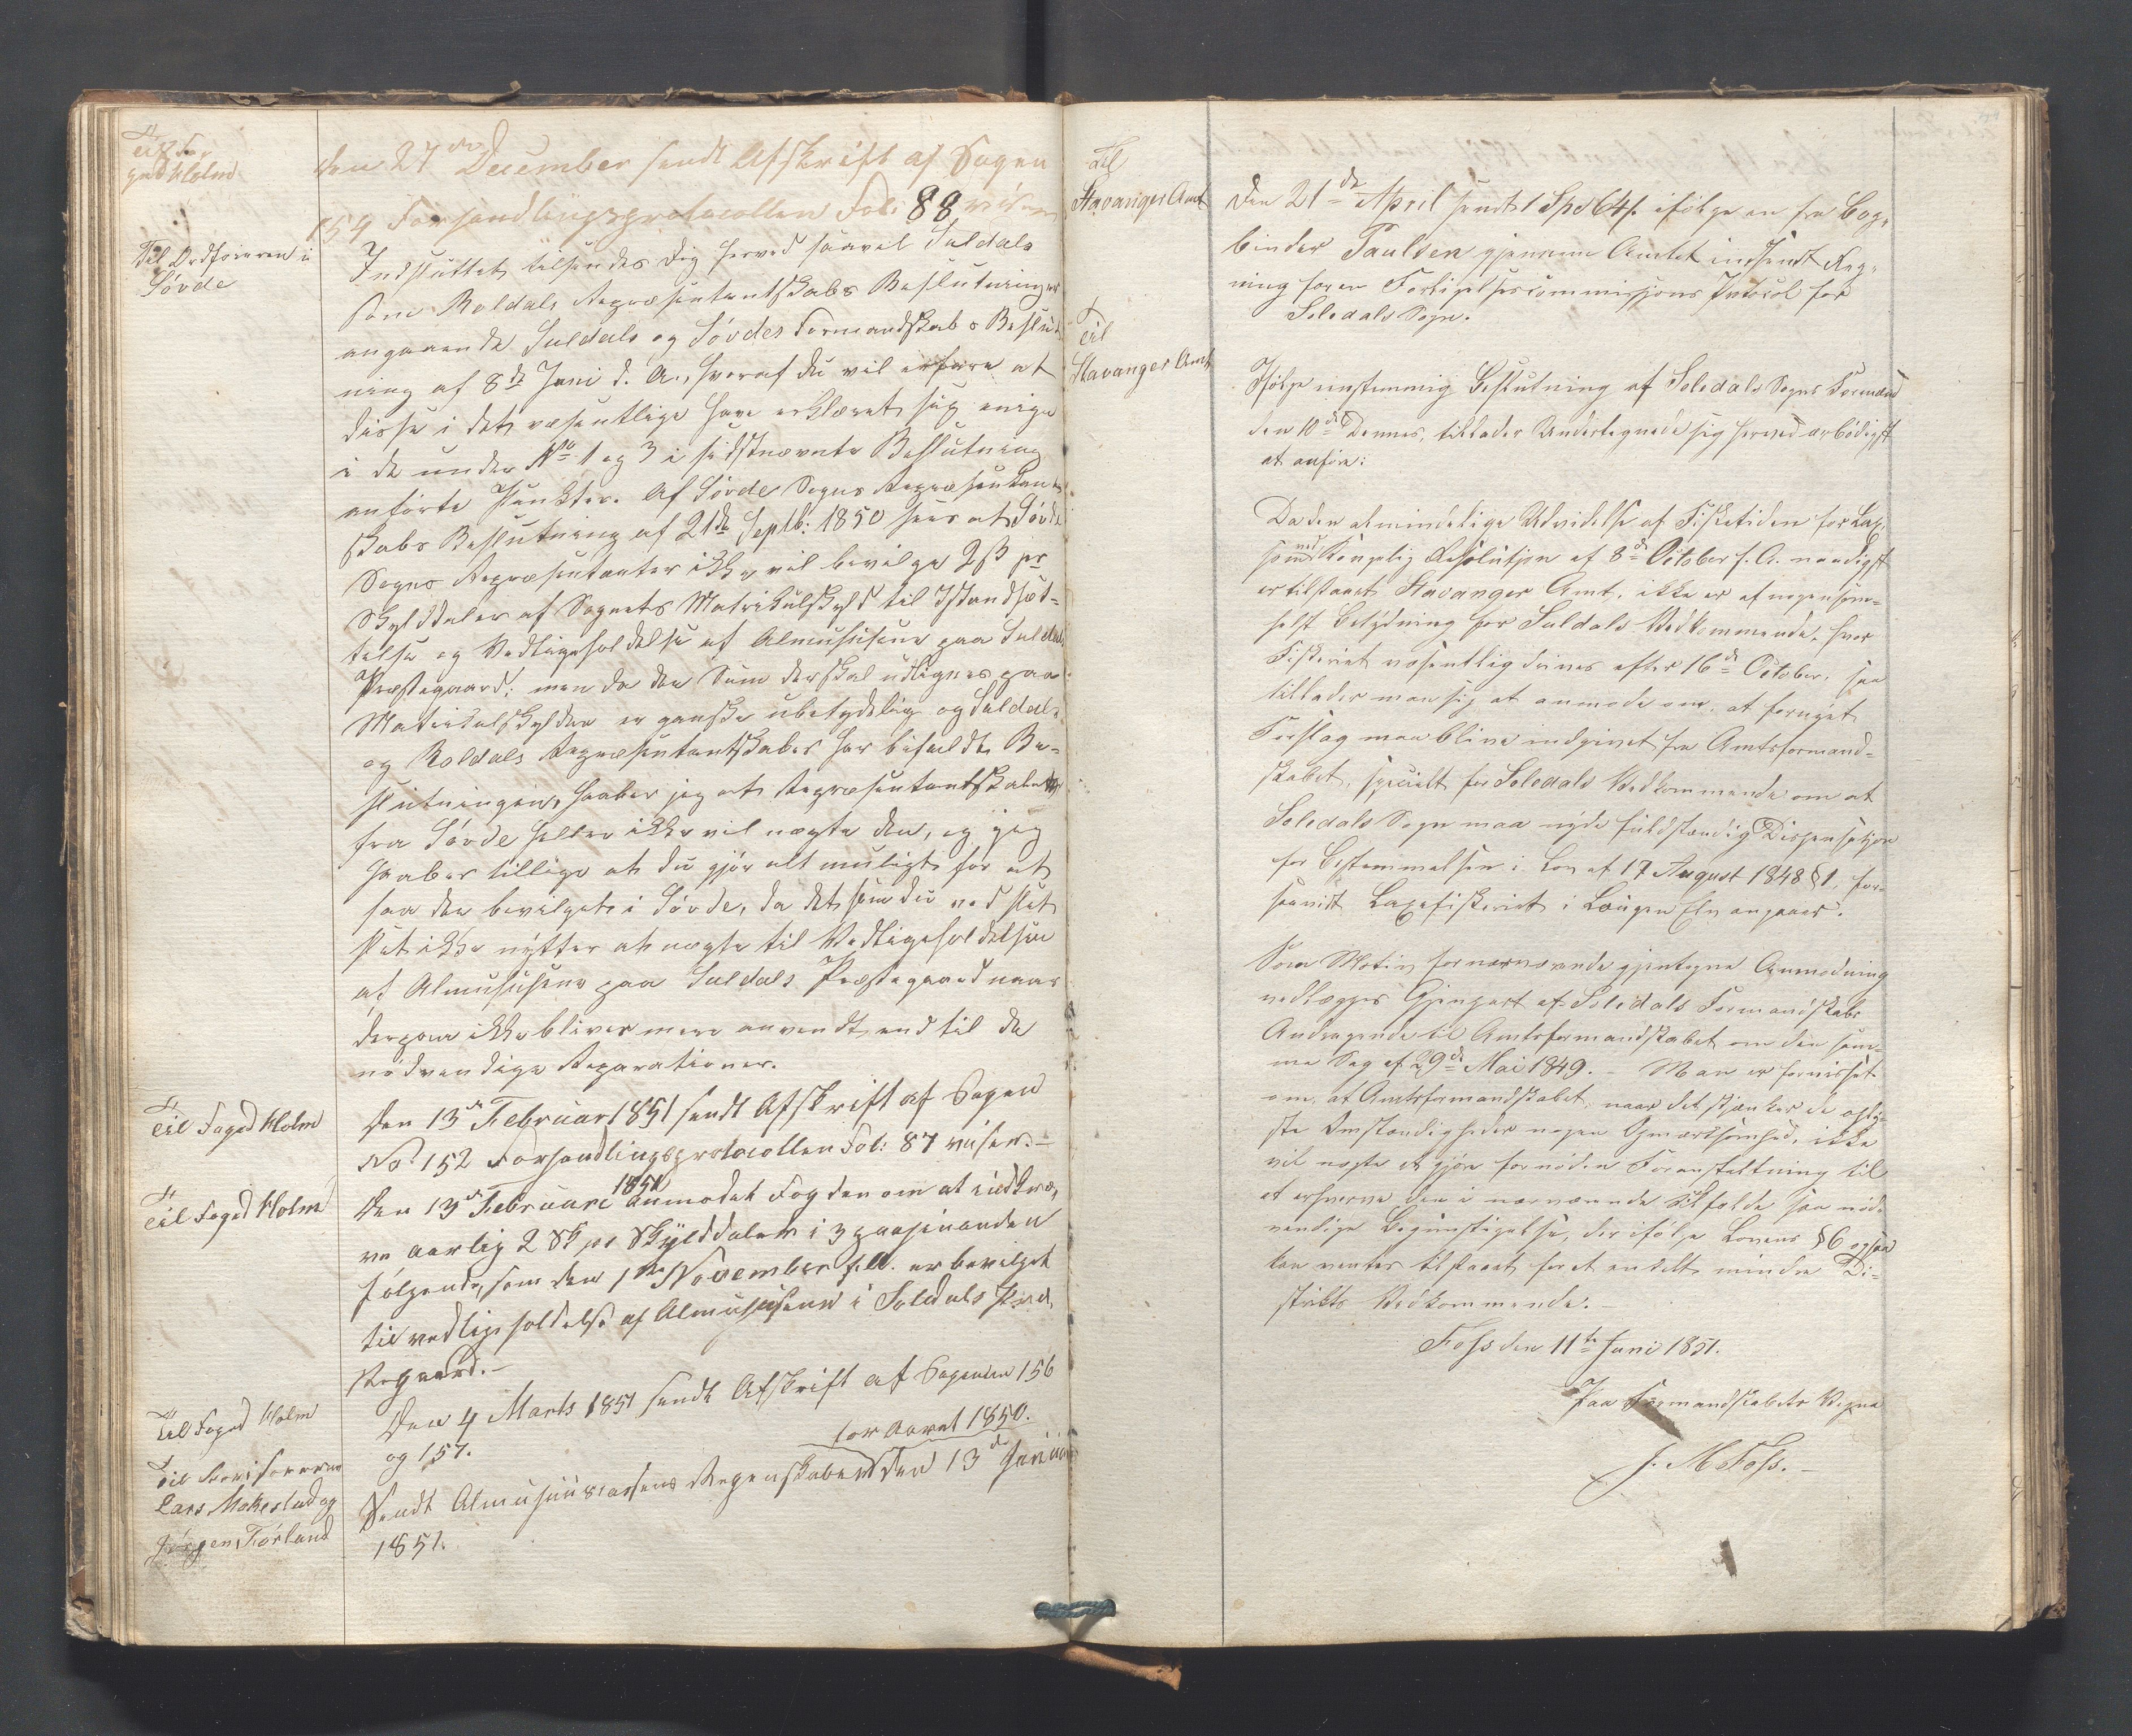 Til Fo-
ged Holm
den 27de December sendt Afskrift af Sagen
154 Forhandlingsprotocollen Fol: 88 viser
Til Ordføreren i
Søvde
Indsluttet tilsendes Dig herved saavel Suldals
som Roldals Repræsentantskabs Beslutninger
angaaende Suldals og Søvdes Formandskabs Beslut
ning af 8de Juni d. A., hvoraf Du vil erfare at
disse i det væsentlige have erklæret sig enige
i de under No 1 og 3 i sidstnævnte Beslutning
anførte Punkter. Af Søvde Sogns Repræsentant
skabs Beslutning af 21de Septb: 1850 sees at Søvde
Sogns Repræsentanter ikke vil bevilge 2 ß pr
Skylddaler af Sognets Matrikulskyld til Istandsæt-
telse og Vedligeholdelse af Almuehusene paa Suldals
Præstegaard; men da den Sum der skal udlignes paa
Matrikulskylden er ganske ubetydelig og Suldals
og Roldals Repræsentantskaber har bifaldt Be-
slutningen, haaber jeg at Repræsentantskabet
fra Søvde heller ikke vil nægte den, og jeg
haaber tillige at Du gjør alt muligt for at
faa den bevilget i Søvde, da det som Du ved slet
slet ikke nytter at nægte til Vedligeholdelsen
af Almuehusene paa Suldals Præstegaard naar
derpaa ikke bliver mere anvendt end til de
nødvendige Reparationer.
Til Foged Holm
Den 13de Februar 1851 sendt Afskrift af Sagen
No. 152 Forhandlingsprotocollen Fol: 87 viser.-
Til Foged Holm
Den 13de Februari 1851 anmodet Fogden om at indkræ,
ve aarlig 2 Sk pr Skylddaler i 3 paahinanden
følgende, som den 1ste November f.A. er bevilget
til vedligeholdelse af Almuehusene i Suledals Præ
stegaard.-
Til Foged Holm
Den 4 Marts 1851 sendt Afskrift af Sagerne 156
og 157.
Til Revisorerne
Lars Mokestad og
Jørgen Førland
for Aaret 1850.
Sendt Almuehuuscassens Regenskaber den 13de Januar
1851.
Til
Stavanger Amt
Den 21de April sendt 1 Spd 64 s. ifølge en fra Bog,
binder Paulsen gjennem Amtet indsendt Reg,
ning for en Forligelsescommissions Protocol for
Soledals Sogn.
Til
Stavanger Amt
Ifølge eenstemmig Beslutning af Soledals Sogns Formænd
den 10de Dennes, tillader Undertegnede sig herved ærbødigst
at anføre:
Da den almindelige Udvidelse af Fisketiden for Lax,
som ved Kongelig Resolution af 8de October f. A. naadigst
er tilstaaet Stavanger Amt, ikke er af nogensom-
helst Betydning for Suldals Vedkommende, hvor
Fiskeriet væsentlig drives efter 16de October, saa
tillader man sig at anmode om, at fornyet
Forslag maa blive indgivet fra Amtsformand-
skabet, specielt for Soledals Vedkommende om at
Soledals Sogn maa nyde fuldstændig Dispensation
fra Bestemmelsen i Lov af 17 August 1848 §1, for-
saavidt Laxefiskeriet i Lougen Elv angaaer.
Som Motiv for nærværende gjentagne Anmodning
vedlægges Gjenpart af Soledals Formandskabs
Andragende til Amtsformandskabet om den sam-
me Sag af 29de Mai 1849. - Man er forvisset
om, at Amtsformandskabet, naar det skjænker de oply-
ste Omstændigheder nogen Opmærksomhed, ikke
vil nægte at gjøre fornøden Foranstaltning til
at erhverve den i nærværende Tilfælde saa nød-
vendige Begunstigelse, der ifølge Lovens §6 ogsaa
kan ventes tilstaaet for et enkelt mindre Di-
strikts Vedkommende.-
Foss den 11te Juni 1851.
Paa Formandskabets Vegne
J. M Foss.-